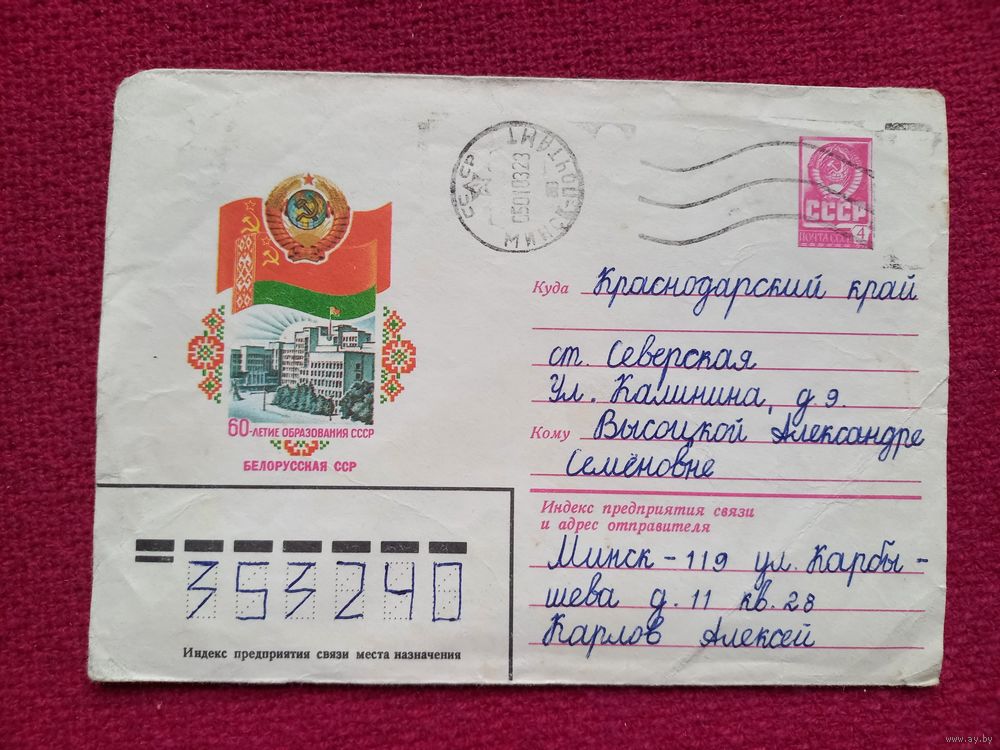 ССАСР
МИНСК-ПОЧТАМТ
СССР
ПОЧТА СССР
4
Куда Краснодарский край
ст. Северская
Ул. Калинина, д.9.
Кому Высоцкой Александре
Семёновне
60-ЛЕТИЕ ОБРАЗОВАНИЯ СССР
БЕЛОРУССКАЯ ССР
Индекс предприятия связи
и адрес отправителя
Минск-119 ул. Карбы-
шева д.11 кв.28
Карлов Алексей
353240
Индекс предприятия связи места назначения
www.ay.by